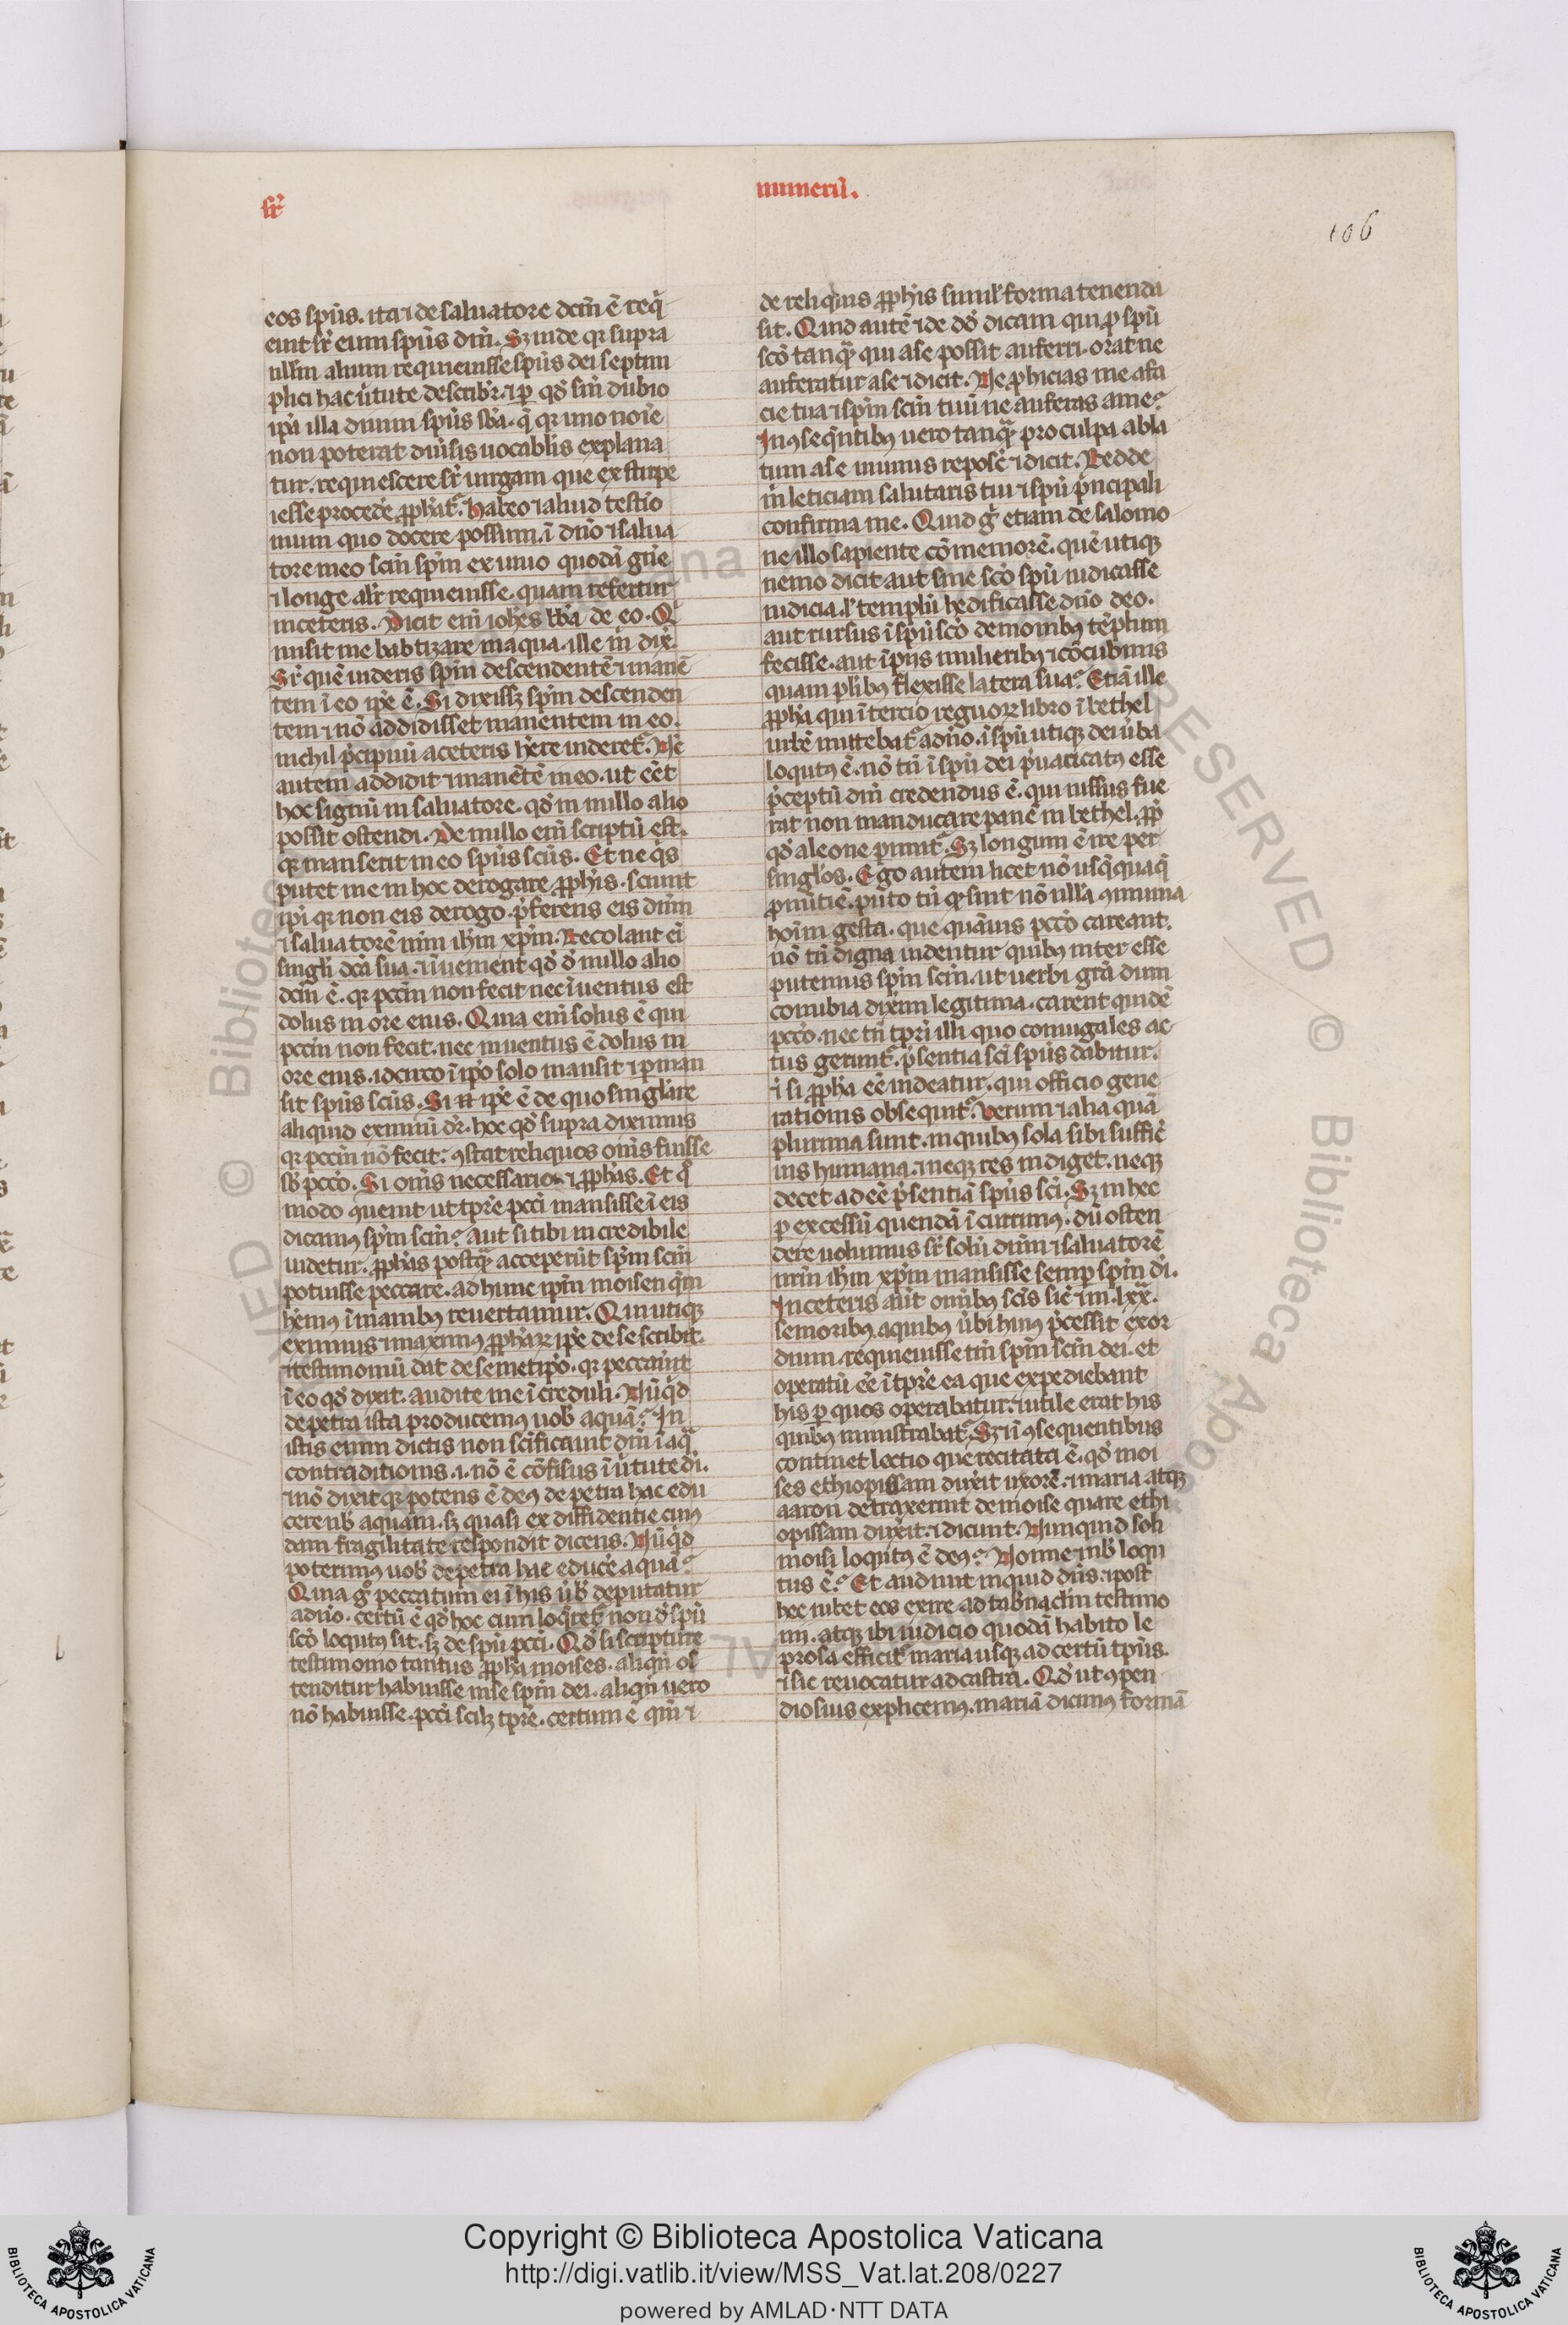 sr̄
numerū.
106
eos spūs. ita ⁊ de saluatore dcm̄ ē reqͥ
euit sr̄ eum spūs dn̄i. Sꝫ uide qꝛ supra
ullum alium requieuisse spūs dei septem
plici hac uͥtute describit̄. ⁊ ꝑ qd̓ sin̄ dubio
ip̄a illa diuini spūs sb̄a. q̄ qꝛ uno noīe
non poterat diuͥsis uocablis explana
tur. requiescere sr̄ uirgam que ex stirpe
iesse procedēͤ ꝓph̓at᷑. Habeo ⁊ aliud testio
nium quo docere possum. ī dn̄o ⁊ salua
tore meo scm̄ spm̄ eximio quodā gn̄e
⁊ longe alit̄ requieuisse. quam refertur
in ceteris. Dicit em̄ ioh̓es bb̓a de eo. Qͥ
misit me babtizare in aqua. ille m̄ dix̄.
Sr̄ quē uideris spm̄ descendentē ⁊ manē
tem ī eo ip̄e ē. Si dixissꝫ spm̄ descenden
tem ⁊ nō addidisset manentem in eo.
nichil pͥcipuū a ceteris hēre uideret᷑. Nē
autem addidit ⁊ manētē in eo. ut eēt
hoc signū in saluatore. qd̓ in nullo alio
possit ostendi. De nullo em̄ scriptū est.
qꝛ manserit in eo spūs scūs. Et ne qͥs
putet me in hoc derogare ꝓph̓is. sciunt
ip̄i qꝛ non eis derogo. p̄ferens eis dūm
⁊ saluatorē nr̄m ih̄m xp̄m. Recolant ei
singli dc̄a sua. ⁊ īuenient qd̓ d̓ nullo alio
dcm̄ ē. qꝛ pccm̄ non fecit nec īuentus est
dolus in ore eius. Quia em̄ solus ē qui
pccm̄ non fecit. nec inuentus ē dolus in
ore eius. idcirco ī ip̄o solo mansit ⁊ ꝑman
sit spūs scūs. Si n̄ ip̄e ē de quo singl̓are
aliquid eximiū dr̄. hoc qd̓ supra diximus
qꝛ pccm̄ nō fecit. ꝯstat reliquos om̄s fuisse
sb̓ pcc̄o. Si om̄s necessario ⁊ ꝓph̓as. Et qͦ
modo ꝯuenit ut tp̄re pcc̄i mansisse ī eis
dicamꝰ spm̄ scm̄? Aut si tibi incredibile
uidetur. ꝓph̓as postqͣ acceperūt spm̄ scm̄
potuisse peccare. ad hunc ip̄m moisen qͥm
hēmꝰ ī manibꝫ reuertamur. Qui utiqꝫ
eximius ⁊ maximꝰ ꝓph̓aꝝ ip̄e de se scribit.
⁊ testimoniū dat de semetip̄o. qꝛ peccauit
ī eo qd̓ dixit. audite me ī creduli. Nūqͥd
de petra ista producemꝰ uob̓ aquā? In
istis enim dictis non scīficauit dn̄m ī aqͣ
contraditionis .i. nō ē cōfisus ī uͥtute di.
⁊ nō dixit qꝛ potens ē deꝰ de petra hac edu
cere uob̓ aquam. sꝫ quasi ex diffidentie cuiꝰ
dam fragilitate respondit dicens. Nūqͥd
poterimꝰ uob̓ de petra hac educēͤ aquā?
Quia gͦ peccatum ei ī his uͥb̓ deputatur
a dn̄o. certū ē qd̓ hoc cum loq̄ret᷑ non d̓ spū
scō loqutꝰ sit. sꝫ de spū pcc̄i. Qd̓ si scripture
testimonio tantus ꝓph̓a moises. aliqn̄ os
tenditur habuisse in se spm̄ dei. aliqn̄ uero
nō habuisse. pcc̄i scilꝫ tp̄re. certum ē qm̄ ⁊
de reliquis ꝓph̓is simil̓ forma tenenda
sit. Quid autē ⁊ de dd̓ dicam qui ꝓ spū
scō tanqͣ qui a se possit auferri. orat ne
auferatur a se ⁊ dicit. Ne ꝓhicias me a fa
cie tua ⁊ spm̄ scm̄ tuū ne auferas a me?
In ꝯseq̄ntibꝫ uero tanqͣ pro culpa abla
tum a se munus reposc̄ ⁊ dicit. Redde
m̄ leticiam salutaris tui ⁊ spū pͥncipali
confirma me. Quid gͦ etiam de salomo
ne illo sapiente cōmemorē. quē utiqꝫ
nemo dicit aut sine scō spū iudicasse
iudicia. l̓ templū hedificasse dn̄o deo.
aut rursus ī spū scō demonibꝫ tēplum
fecisse. aut īpiis mulieribꝫ ⁊ cōcubinis
quam plibꝫ flexisse latera sua? Etiā ille
ꝓph̓a qui ī tercio regnoꝝ libro ī bethel
urbē mittebat᷑ a dn̄o. ī spū utiqꝫ dei uͥba
loqutꝰ ē. nō tn̄ ī spū dei p̄uaricatꝰ esse
p̄ceptū dn̄i credendus ē. qui iussus fue
rat non manducare panē in bethel. ꝓp̄
qd̓ a leone ꝑimit᷑. Sꝫ longum ē ire per
singlos. Ego autem licet nō usq̄quaqͣ
ꝓnūtiē. puto tn̄ qꝛ sint nō nulla ꝯmunia
hoīm gesta. que quāuis pcc̄o careant.
nō tn̄ digna uidentur quibꝫ inter esse
putemus spm̄ scm̄. ut uerbi grā dum
conubia dixeim legitima. carent quidē
pcc̄o. nec tn̄ tp̄ri illi quo coniugales ac
tus gerunt᷑. p̄sentia sci spūs dabitur.
⁊ si ꝓph̓a eē uideatur. qui officio gene
rationis obsequit᷑. Verum ⁊ alia quā
plurima sunt. in quibꝫ sola sibi sufficͭ
uis humana. ⁊ neqꝫ res indiget. neqꝫ
decet ad eē p̄sentiā spūs sci. Sꝫ in hec
ꝑ excessū quendā ī currimꝰ. dū osten
dere uolumus sr̄ solū dn̄m ⁊ saluatorē
nr̄m ih̄m xp̄m mansisse semꝑ spm̄ di.
In ceteris aūt om̄ibꝫ scīs sic̄ ī in. lxx.
senioribꝫ. a quibꝫ uͥbi huiꝰ pͥcessit exor
dium. requieuisse tm̄ spm̄ scm̄ dei. et
operatū eē ī tp̄re ea que expediebant
his ꝑ quos operabatur. ⁊ utile erat his
quibꝫ ministrabat᷑. Sꝫ ī ꝯsequentibus
continet lectio que recitata ē. qd̓ moi
ses ethiopissam duxit uxorē. ⁊ maria atqꝫ
aaron detraxerunt de moise quare ethi
opissam duxit. ⁊ dicunt. Nunquid soli
moisi loqutꝰ ē deꝰ? Nonne ⁊ nob̓ loqu
tus ē? Et audiuit inquid dn̄s. ⁊ post
hec iubet eos exire ad tab̓naclm̄ testimo
nii. atqꝫ ibi iudicio quodā habito le
prosa efficit᷑ maria usqꝫ ad certū tp̄us.
⁊ sic reuocatur ad castra. Qd̓ ut ꝯpen
diosius explicemꝰ. mariā dicimꝰ formā
Copyright © Biblioteca Apostolica Vaticana
http://digi.vatlib.it/view/MSS_Vat.lat.208/0227
powered by AMLAD·NTT DATA